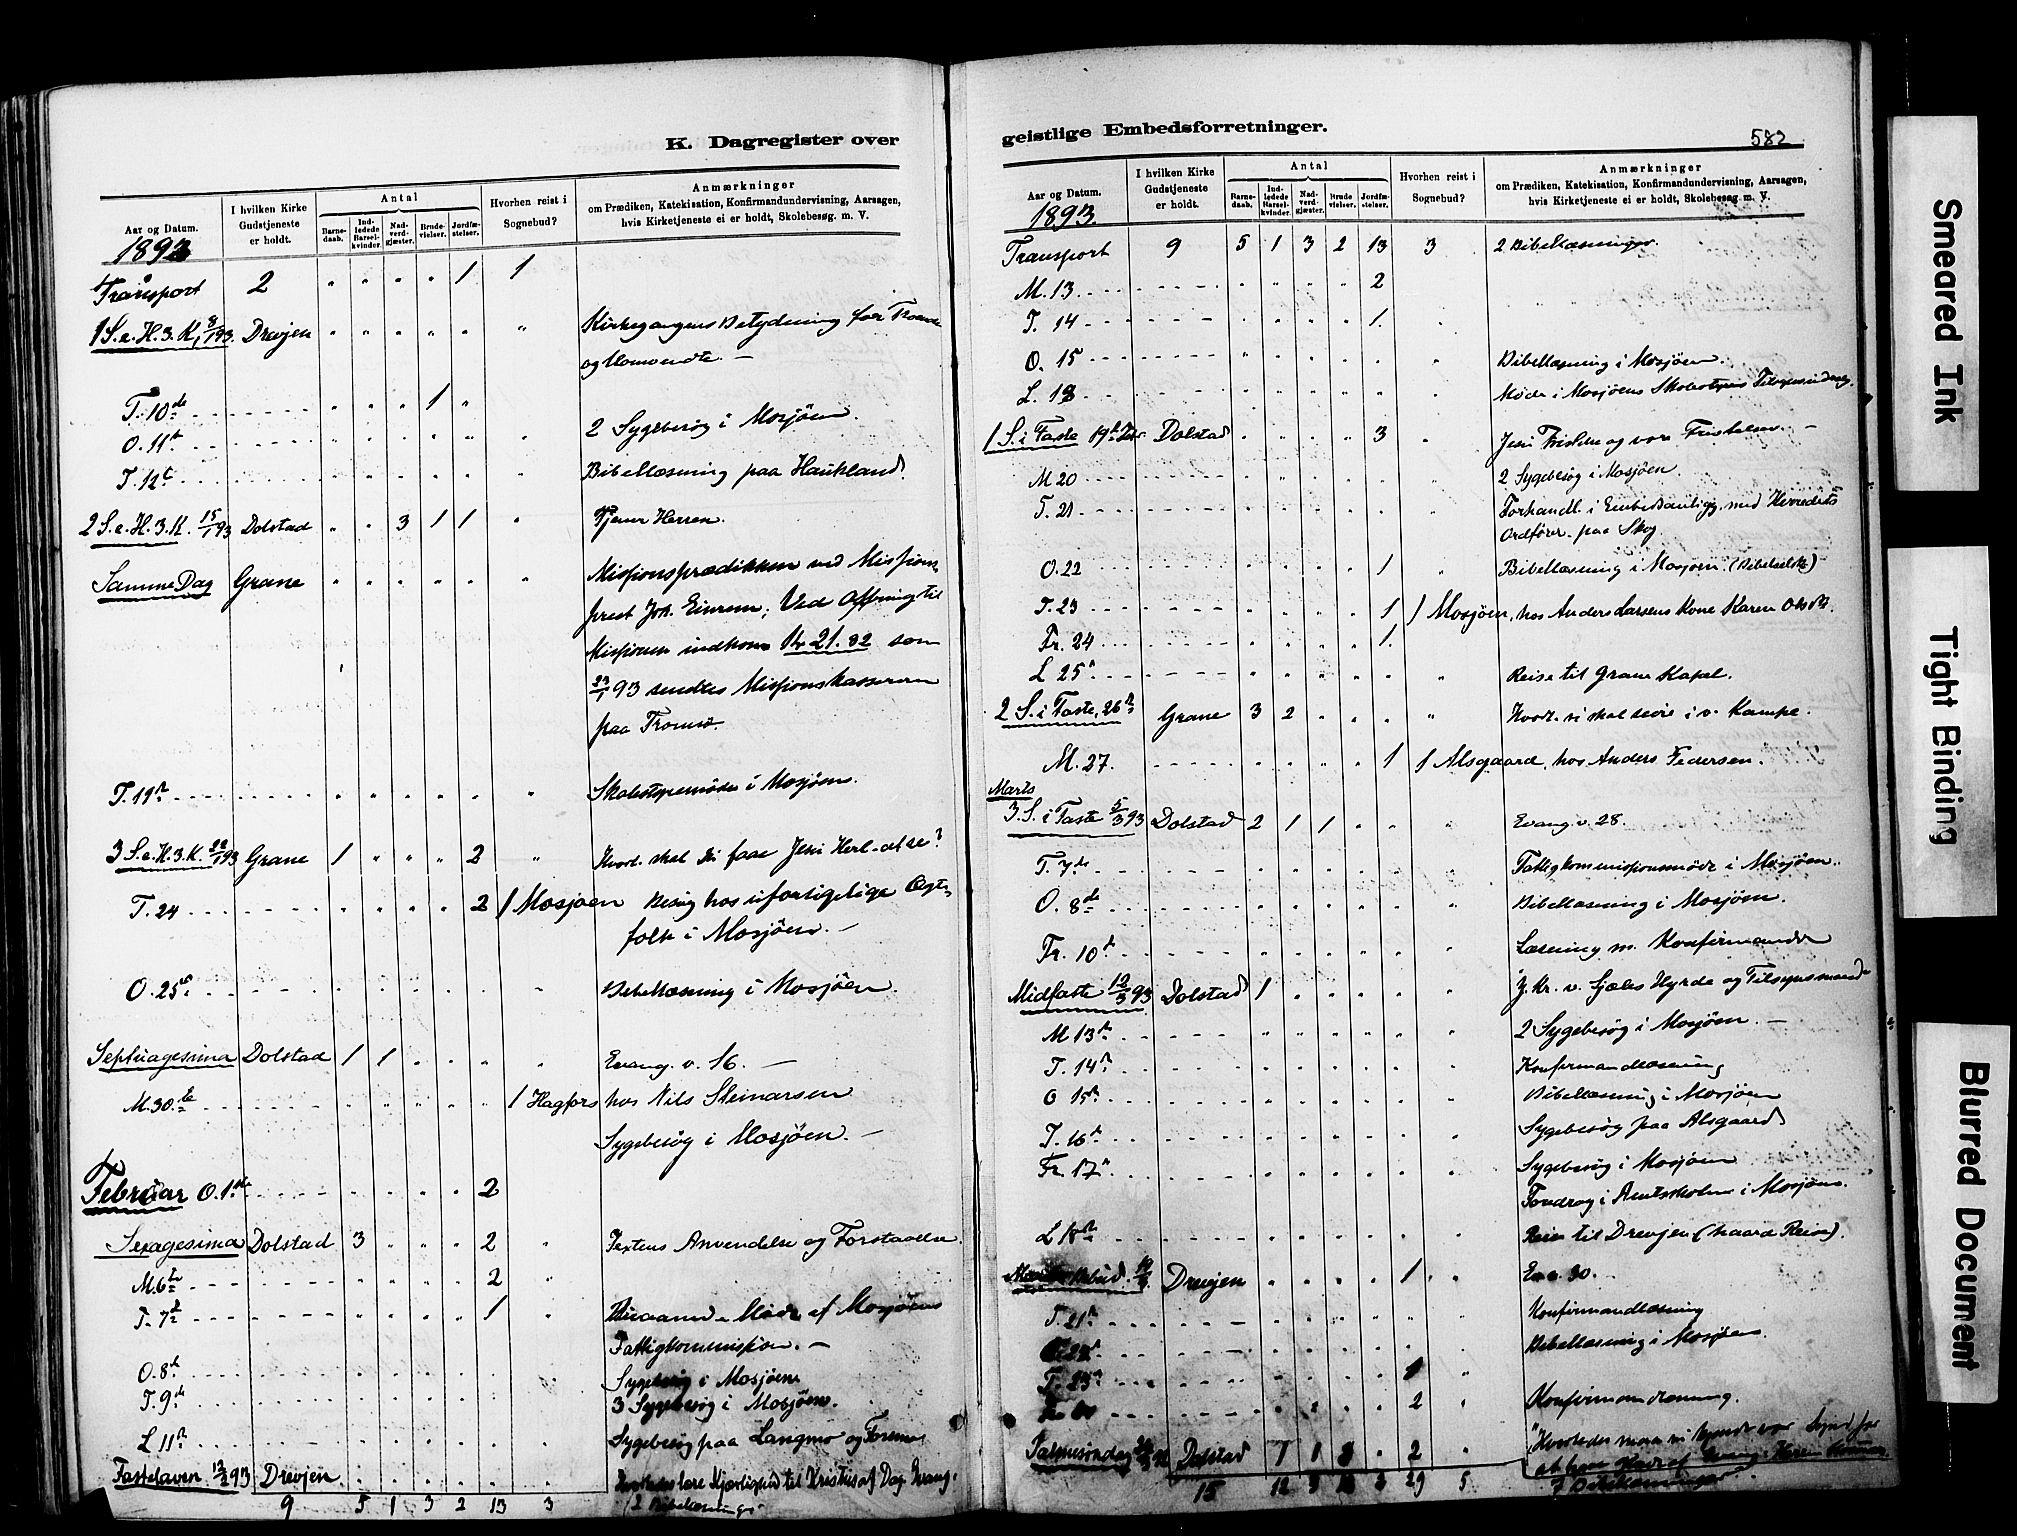 K. Dagregister over
Aar og Datum.
1893
I hvilken Kirke Gudstjeneste er holdt.
Antal
Barnedaab.
Indledede Barselkvinder.
Nadverdgjæster.
Brudevielser.
Jordfæstelser.
Hvorhen reist i Sognebud?
Anmærkninger
om Prædiken, Katekisation, Konfirmandundervisning, Aarsagen,
hvis Kirketjeneste ei er holdt, Skolebesøg. m. V.
Transport 2 " " " " 1 1
1 S. e. H. 3. K. 8/1 93. Drevjen " " " " " " Kirkegangens Betydning for Troende
og Uomvendte. —
T. 10de " " " 1 "
O. 11te 2 Sygebesøg i Mosjöen.
T. 12te Bibellæsning paa Haukland.
2 S. e. H. 3. K. 15/1 93 Dolstad " " 3 1 1 " Tjener Herren.
Samme Dag Grane " " " " " " Missionsprædikken ved Missions-
prest Joh. Einrem; Ved Ofring til
Missionen indkom Kr 21.82 som
23/1 93 sendtes Missionskasseren
paa Tromsö.
T. 19de Skolestyremöde i Mosjöen.
3 S. e. H. 3. K. 22/1 93 Grane 1 " " " 2 " Hvorl. skal vi faae Jesu Herl. at se?
T. 24 2 1 Mosjöen Besög hos uforligelige Ægte-
folk i Mosjöen. —
O. 25de Bibellæsning i Mosjöen.
Septuagesima Dolstad 1 1 " " " " Evang. v. 16. —
M. 30te 1 Hagfors hos Nils Steinarsen
Sygebesög i Mosjöen. —
Februar O. 1ste 2
Sexagesima Dolstad 3 " " " 2 " Textens Anvendelse og Forstaaelse
M. 6te 2
T. 7de 1 Møde af Mosjöens
Fattigkommission. —
O. 8de Sygebesög i Mosjöen
T. 9de 3 Sygebesög i Mosjöen.
L 11te Sygebesög paa Langmo og Forsmo
Fastelaven. 12/2 93 Drevjen. Kjærlighed til Kristus af Dag. Evang.
9 5 1 3 2 13 3 (2 Bibellæsninger
geistlige Embedsforretninger.
582
Aar og Datum.
1893
I hvilken Kirke Gudstjeneste er holdt.
Antal
Barnedaab.
Indledede Barselkvinder.
Nadverdgjæster.
Brudevielser.
Jordfæstelser.
Hvorhen reist i Sognebud?
Anmærkninger
om Prædiken, Katekisation, Konfirmandundervisning, Aarsagen,
hvis Kirketjeneste ei er holdt, Skolebesøg. m. V.
Transport 9 5 1 3 2 13 3 2 Bibellæsninger.
M. 13 2
T. 14 1.
O. 15 Bibellæsning i Mosjöen.
L. 18 Møde i Mosjöens Skolestyres Tilsynsudvalg.
1 S. i Faste 19de Febr. Dolstad " " " " 3 " Jesu Fristelse og vore Fristelser. —
M 20 2 Sygebesög i Mosjöen.
T. 21 Forhandl. i Embedsanligg. med Herredets
Ordförer paa Skog
O. 22 1 Bibellæsning i Mosjöen. (Bibelselsk.)
T. 23 1 1 Mosjöen, hos Anders Larsens Kone Karen Olsdt.
Fr. 24 1.
L 25de Reise til Grane Kapel.
2 S. i Faste, 26de Grane 3 2 " " " " Hvorl. vi skal seire i v. Kampe.
M. 27. 1 1 Alsgaard, hos Anders Pedersen.
Marts
3. S. i Faste 5/3 93 Dolstad 2 1 1 " " " Evang. v. 28.
T. 7de Fattigkommissionsmöde i Mosjöen.
O. 8de Bibellæsning i Mosjöen.
Fr. 10de Læsning m. Konfirmander
Midfaste 12/3 93 Dolstad 1 " " " " " J. Kr. v. Sjæles Hyrde og Tilsynsmand
M 13de 2 Sygebesög i Mosjöen. —
T. 14de Konfirmandlæsning
O 15de Bibellæsning i Mosjöen
T. 16de Sygebesög paa Alsgaard
Fr. 17de Sygebesög i Mosjöen
Foredrag i Amtsskolen i Mosjöen.
L 18de Reise til Drevjen (haard Reise).
Mariæ Bebud. 19/3 Drevjen " " " " 1 " Ev. v. 30.
T. 21de Konfirmandlæsning
O. 22de Bibellæsning i Mosjöen.
T. 23de 1
2 Konfirmandlæsning.
Palmesöndag Dolstad 1 1 " 2 "
15 12 29 5 7 Bibellæsninger
Smeared Ink
Tight Binding
Blurred Document